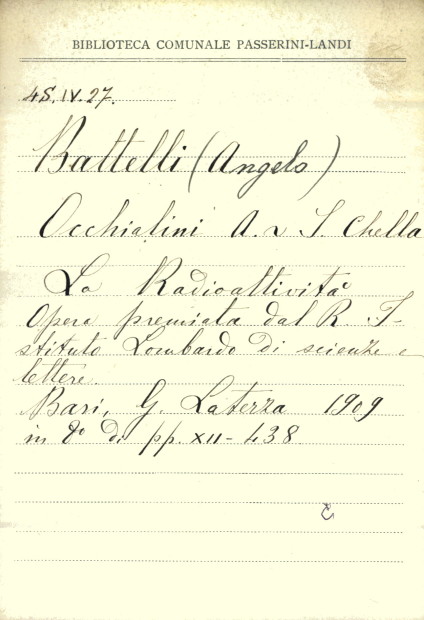 BIBLIOTECA COMUNALE PASSERINI-LANDI
4S.IV.27.
Battelli (Angelo)
Occhialini A. e S. Chella
La Radioattività
Opera premiata dal R. I-
stituto Lombardo di scienze e
lettere.
Bari, G. Laterza 1909
in 8° di pp. XII-438